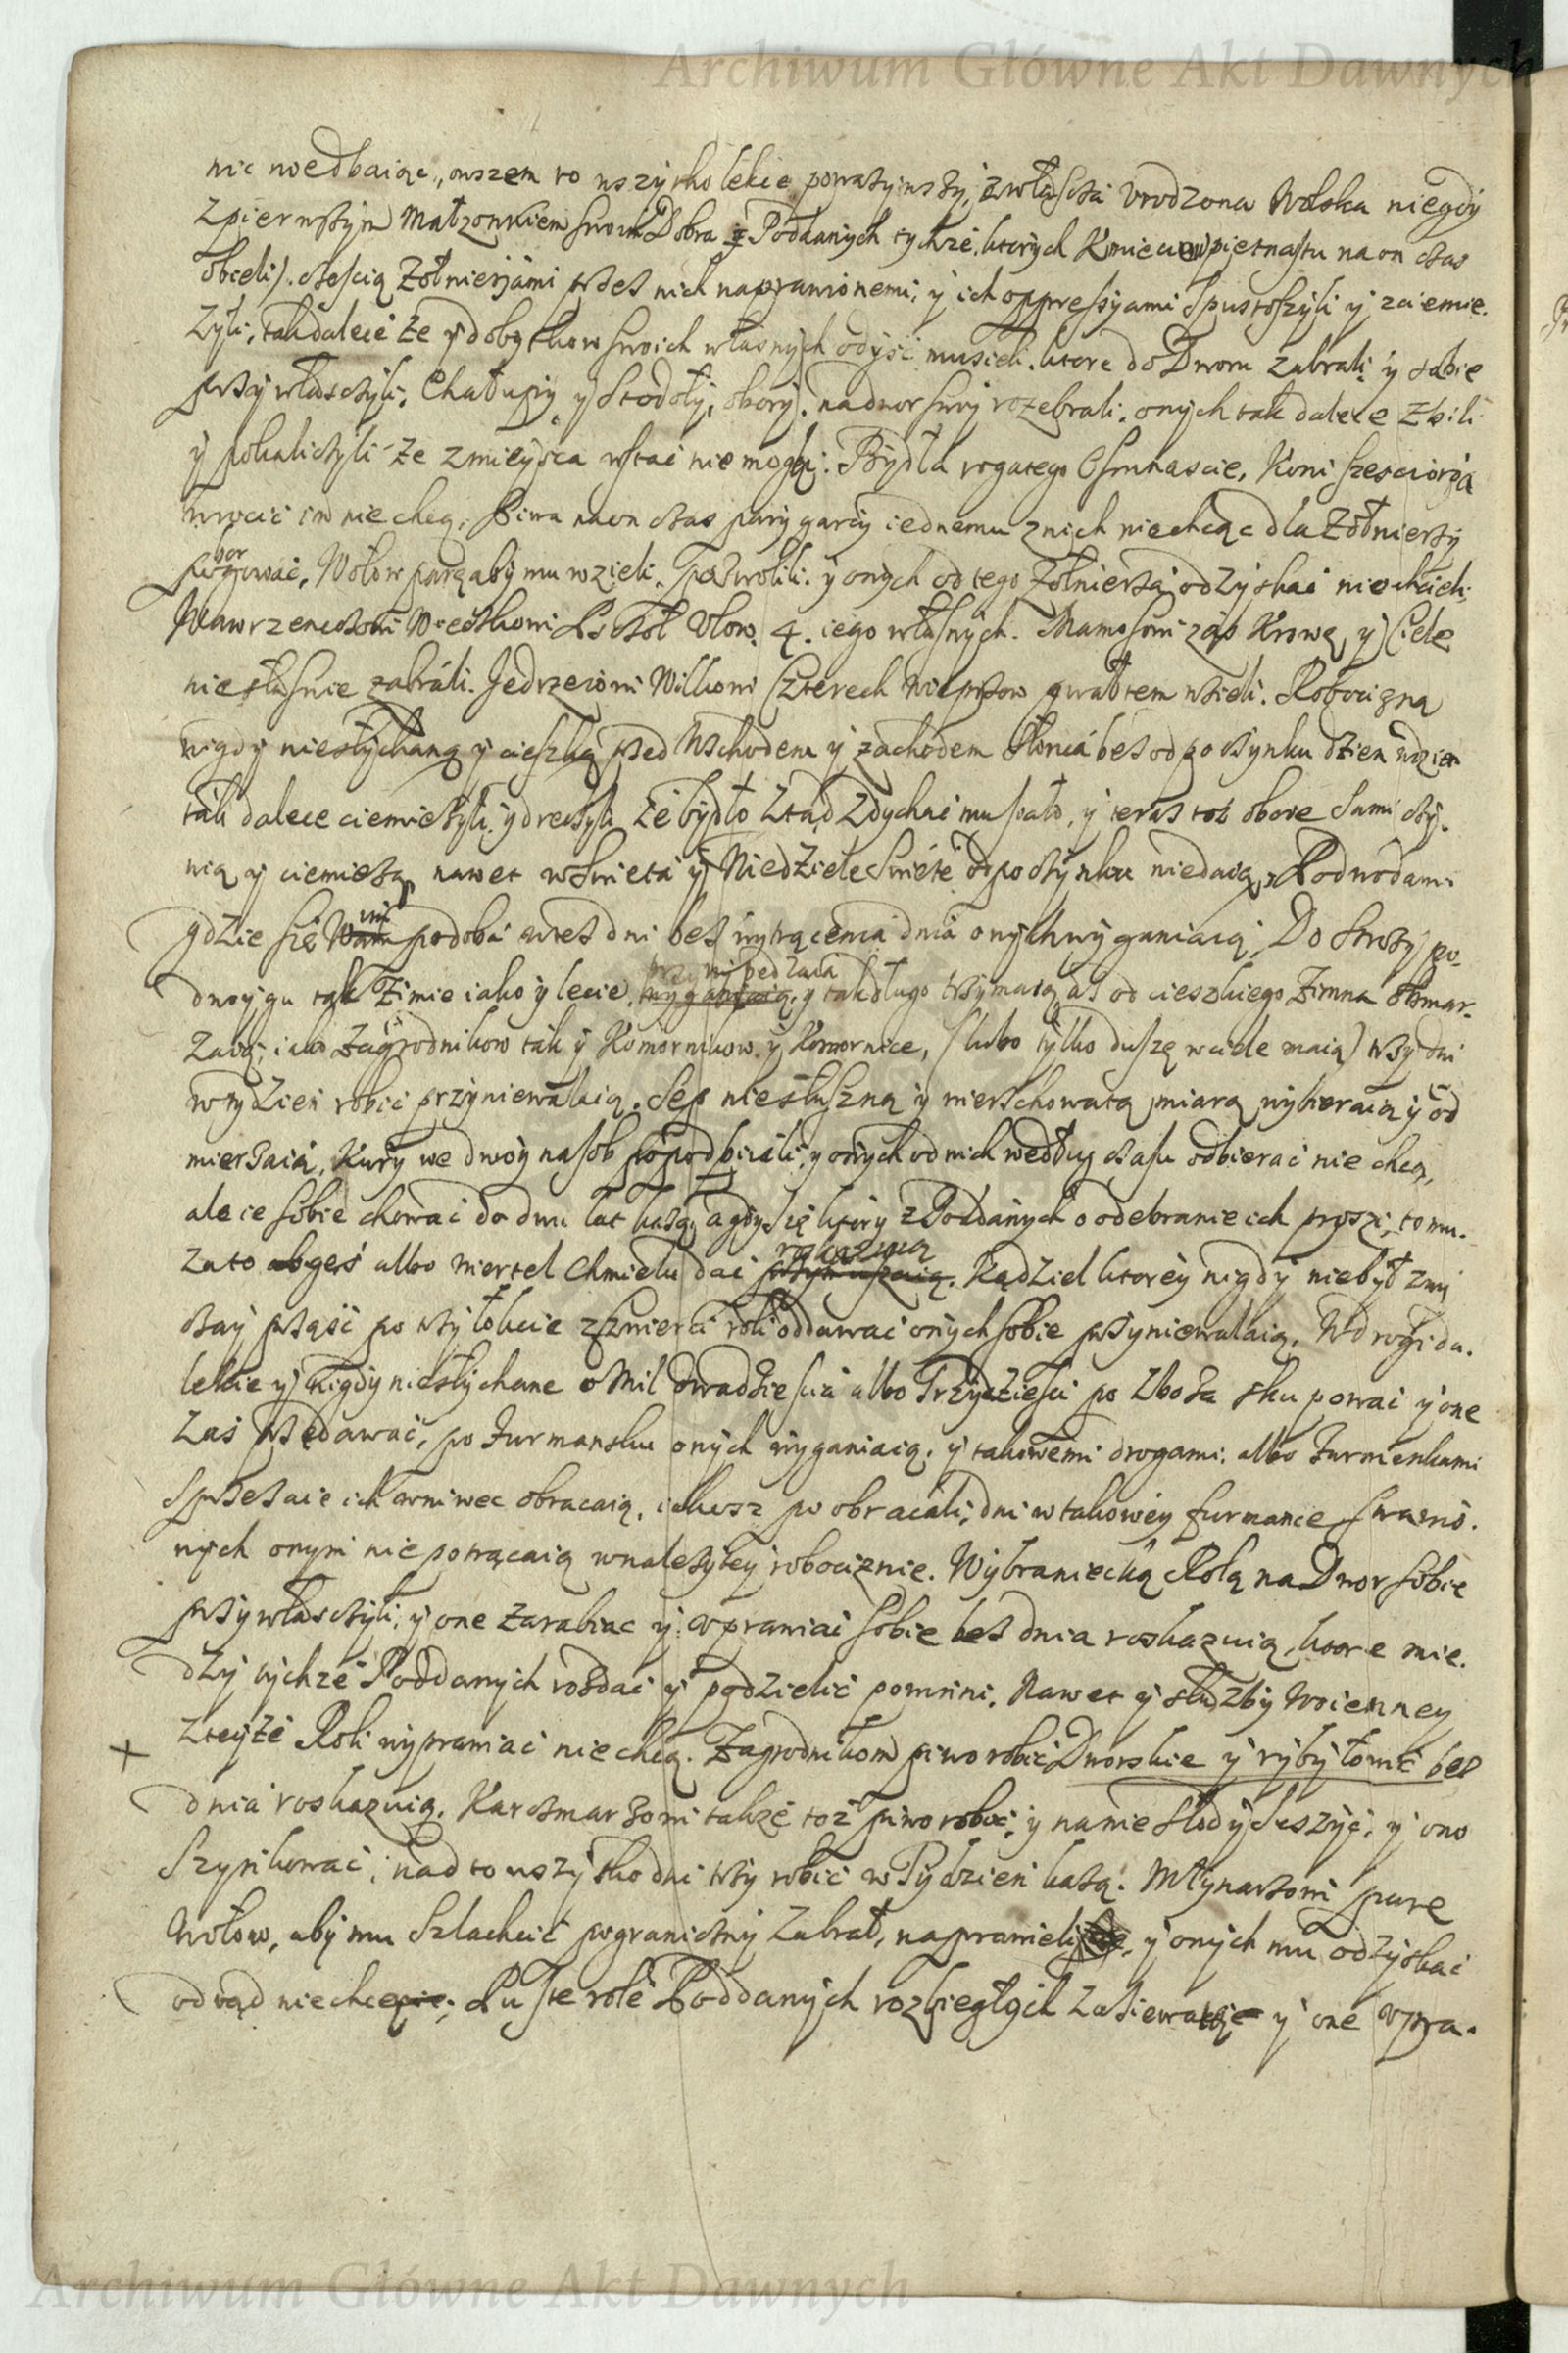 Archiwum Główne Akt Dawnych
nic niedbaiąc, owszem to wszytko lekce poważywszy, zwłascza Vrodzona Wolska niegdy
zpierwszym Małzonkiem swoim Dobra y Poddanych tychże, ktorych Kmieciow piętnastu na on czas
obieli. częscią Zołnierzami przez nich naprawionemi, y ich oppressyami spustoszyli y zciemię.
żyli, tak dalece że y dobytkow swoich własnych odyść musieli, ktore do Dworu zabrali y sobie
przywłasczyli, Chałupy y Stodoły, obory. na dwor swoy rozebrali. onych tak dalece zbili
y pokaliczyli że zmieysca wstać nie mogli. Bydła rogatego Osmnascie, Koni sześcioro
wrocic im nie chcą, Piwa na on czas pary garcy iednemu znich niechcąc dla Zołnierzy
borgować, Wołow parą aby mu wzieli, pozwolili. y onych od tego Zołnierza odzyskać nie chcieli,
Wawrzencowi Wołow 4. iego własnych. Mamosowi zas Krowę y Ciele
niesłusnie zabrali. Jedrzeiowi Wilkowi Czterech Wieprzow gwałtem wzieli. Robocizną
nigdy niesłychaną y cieszką przed Wschodem y zachodem Słonca bez odpoczynku dzien wdzien
tak dalece ciemiężyli y dręczyli że bydło ztąd zdychać musiało, y teras toż oboie sami czy.
nią y ciemiężą, nawet wswieta y Niedziele Swiete odpoczynku niedaią, Podwodami
gdzie się im podoba przez dni bez wytrącenia dnia onych wyganiaią, Do Strozy po
dwoygu tak Zimie iako y lecie, przypędzaią wyganiaią, y tak długo trzymaią aż od cieszkiego zimna obmar.
zaią, iako Zagrodnikow tak y Komornikow y Komornice, (lubo tylko duszę w ciele maią) trzy dni
wtydzień robić przyniewalaią. Sep niesłuszną y wierzchowatą miarą wybieraią y od
mierzaią, Kury we dwoy nasob popodbirali, y onych od nich według czasu odbierać nie chcą,
ale ie sobie chować do dwu lat każą, a gdy się ktory z Poddanych o odebranie ich prosi, temu
zato abo gęś albo wiertel Chmielu dać roskazuią przymuszaią. Kądziel ktorey nigdy niebył zwy
czay prząść po trzy łokcie zćwierci roli oddawać onych sobie przyniewalaią, W drogi da.
lekie y nigdy niesłychane o Mil dwadziescia albo Trzydziesci po zboża skupować y one
zaś przedawać, po furmansku onych wyganiaią, y takowemi drogami, albo furmankami
sprzezaie ich wniwec obracaią, y iusz poobracali, dni wtakowey furmance strawio.
nych onym nie potrącaią wnależytey robociznie. Wybraniecką Rolą na Dwor sobie
przywłasczyli, y one zarabiac y wprawiać sobie bez dnia roskazuią, ktore mie.
dzy tychże Poddanych rozdać y podzielić powinni. Nawet y służby Woienney
zteyże Roli wyprawiać nie chcą. Zagrodnikom piwo robić Dworskie y ryby łowić bez
+
dnia roskazuią. Karczmarzowi także toż piwo robić, y na nie słody suszyć, y ono
Szynkować, nad to wszytko dni trzy robić w Tydzień każą. Młynarzowi parę
Wołow, aby mu Szlachcic pograniczny zabrał, naprawieli, y onych mu odzyskać
odtąd niechcą. Puste role Poddanych rozbiegłych zasiewaią y one vpra.
Archiwum Główne Akt Dawnych